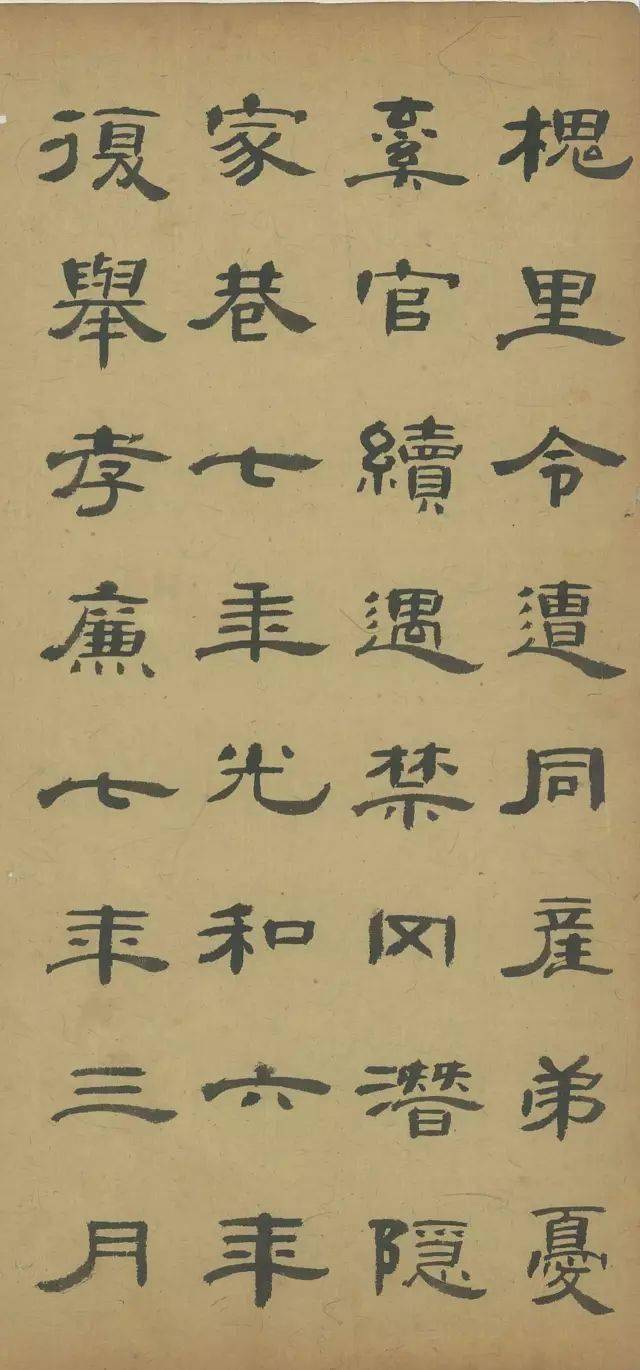 槐里令遭同產弟憂
棄官續遇禁罔潛隱
家巷七年光和六年
復舉孝廉七年三月